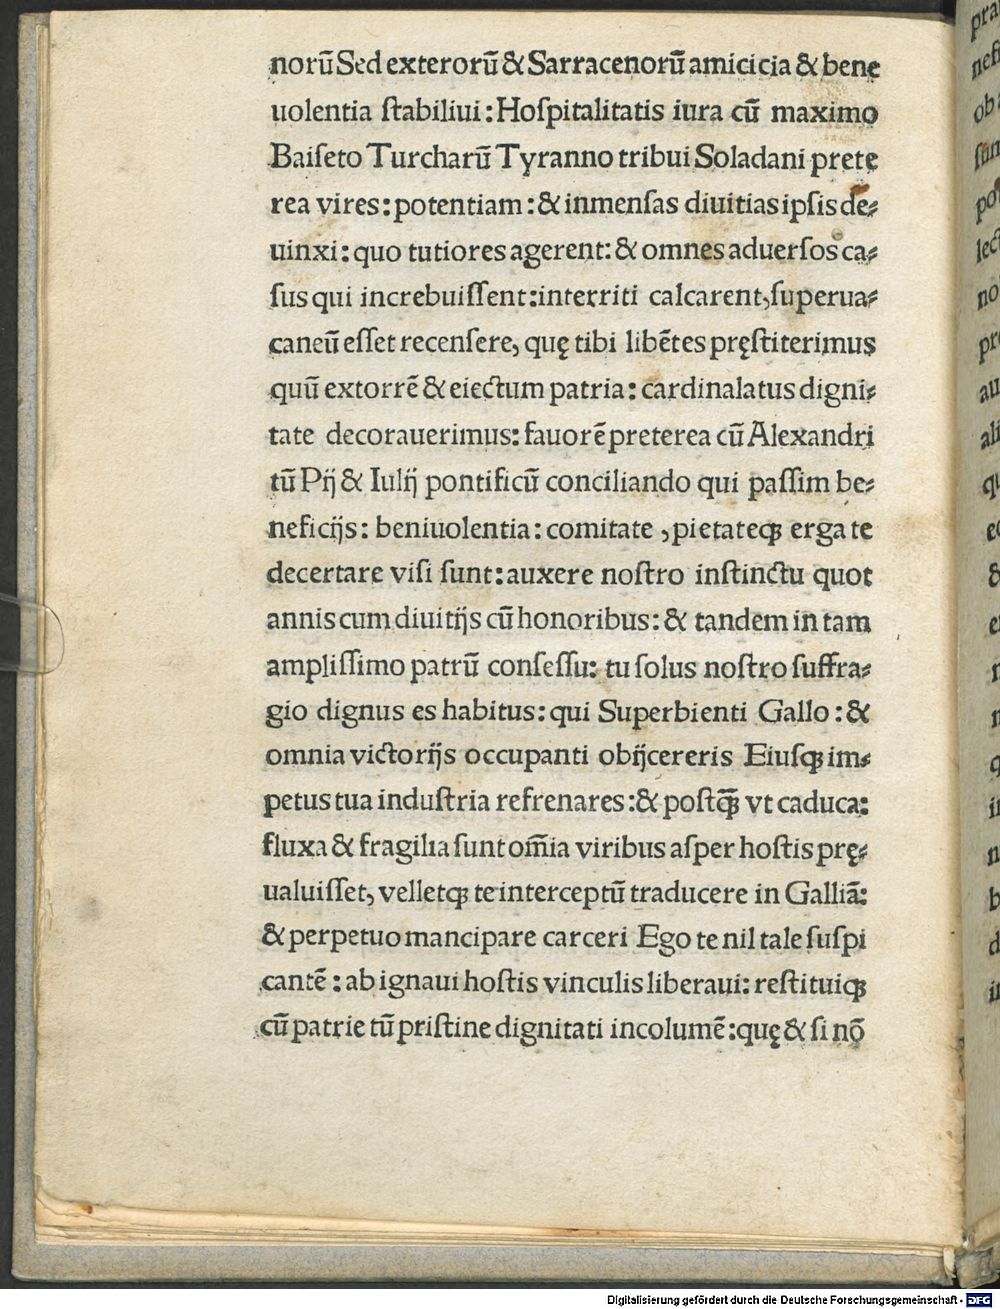 norūSed exterorū & Sarracenorū amicicia & bene
uolentia ſtabiliui: Hoſpitalitatis iura cū maximo
Baiſeto Turcharū Tyranno tribui Soladani prete
rea vires: potentiam: & inmenſas diuitias ipſis de⸗
uinxi: quo tutiores agerent: & omnes aduerſos ca⸗
ſus qui increbuiſſent: interriti calcarent, ſuperua⸗
caneū eſſet recenſere, quę tibi libētes pręſtiterimus
quū extorrē & eiectum patria: cardinalatus digni⸗
tate decorauerimus: fauorē preterea cū Alexandri
tū Pij & Iulij pontificū conciliando qui paſſim be⸗
neficijs: beniuolentia: comitate , pietateqꝫ erga te
decertare viſi ſunt: auxere noſtro inſtinctu quot
annis cum diuitijs cū honoribus: & tandem in tam
ampliſſimo patrū conſeſſu: tu ſolus noſtro ſuffra⸗
gio dignus es habitus: qui Superbienti Gallo: &
omnia victorijs occupanti obijcereris Eiuſqꝫ im⸗
petus tua induſtria refrenares: & poſtqꝫ̄ vt caduca:
fluxa & fragilia ſunt om̄ia viribus aſper hoſtis prę⸗
ualuiſſet, velletqꝫ te interceptū traducere in Galliā:
& perpetuo mancipare carceri Ego te nil tale ſuſpi
cantē: ab ignaui hoſtis vinculis liberaui: reſtituiqꝫ
cū patrie tū priſtine dignitati incolumē: quę & ſi nō
Digitalisierung gefördert durch die Deutsche Forschungsgemeinschaft - DFG